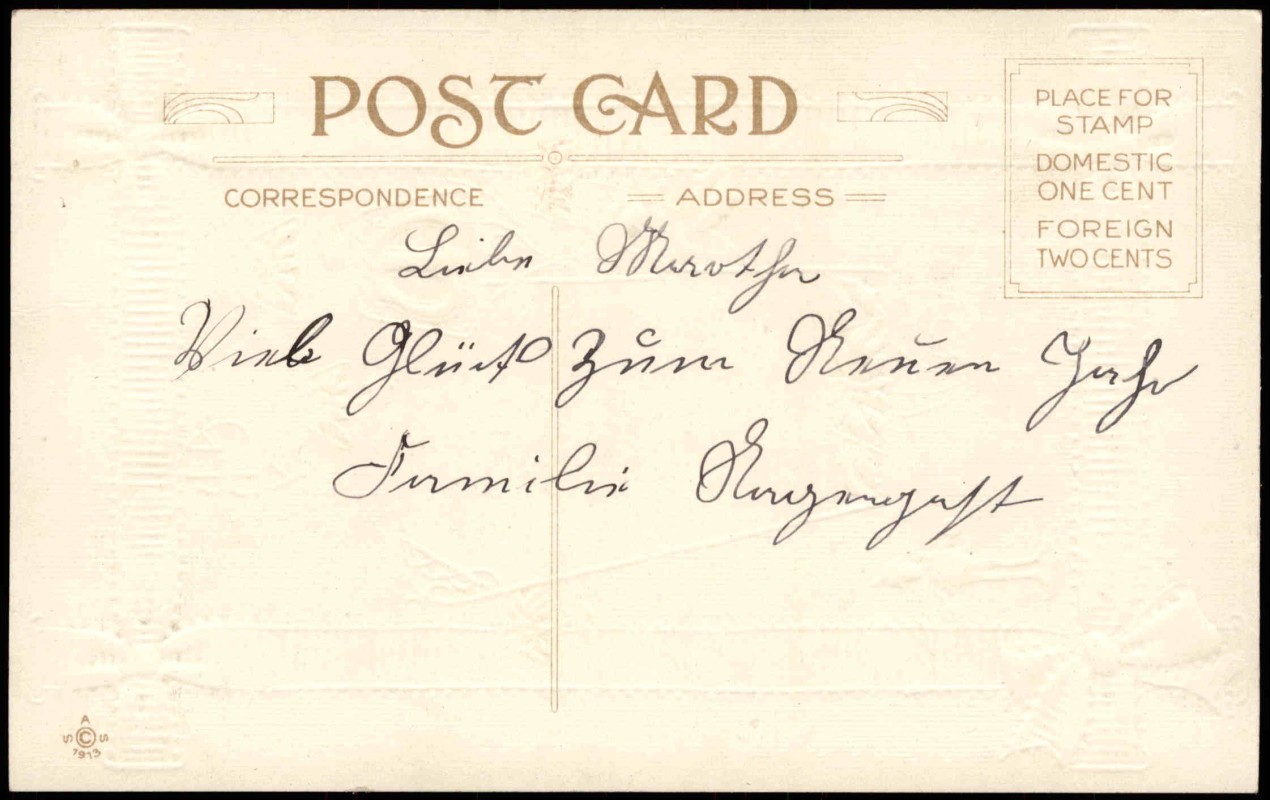 POST CARD
CORRESPONDENCE
ADDRESS
PLACE FOR
STAMP
DOMESTIC
ONE CENT
FOREIGN
TWO CENTS
Liebe Martha
Viel Glück Zum Neuen Jahr
Familie
A
S © S
1913